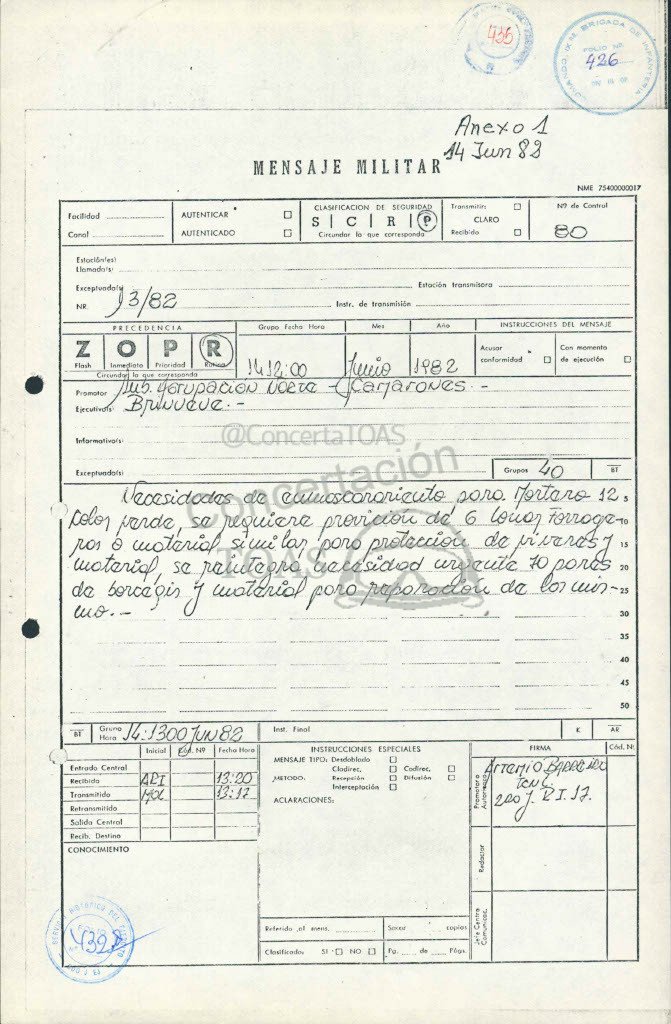 435
COMANDO IX NA BRIGADA DE INFANTERIA
FOLIO Nº
426
Anexo 1
14 Jun 82
MENSAJE MILITAR
NME 75400000017
Facilidad
Canal
AUTENTICAR
AUTENTICADO
CLASIFICACION DE SEGURIDAD
S | C | R | P
Circundar lo que corresponda
Transmitir:
CLARO
Recibido
Nº de Control
80
Estación(es)
Llamada(s)
Exceptuada(s)
Estación transmisora
NR. 3/82
Instr. de transmisión
PRECEDENCIA
Z O P R
Flash Inmediato Prioridad Rutina
Circundar lo que corresponda
Grupo Fecha Hora
Mes
Año
1412:00
Junio
1982
INSTRUCCIONES DEL MENSAJE
Acusar conformidad
Con momento de ejecución
Promotor Sub. Agrupación Norte - Camarones.-
Ejecutivo(s) BRINUEVE.-
Informativo(s)
@ConcertaTOAS
Concertación
TOAS
Exceptuado(s)
Grupos 40
BT
Necesidades de enmascaramiento para Mortero 12 5
color verde, se requiere provición de 6 lonas forrage- 10
ras o material similar para protección de viveres y 15
material, se reintegra necesidad urgente 70 pares 20
de borcegis y material para reparación de los mis- 25
mo.- 30
35
40
45
50
BT
Grupo Hora 14:1300 Jun 82
Inst. Final
K
AR
Inicial
Cód. Nº
Fecha Hora
Entrada Central
Recibido 13:20
Transmitido 13:17
Retransmitido
Salida Central
Recib. Destino
CONOCIMIENTO
INSTRUCCIONES ESPECIALES
MENSAJE TIPO: Desdoblado
Clodirec. Codirec.
METODO: Recepción Difusión
Interceptación
ACLARACIONES:
Referido al mens.
Sacar copias
Clasificado: SI NO
Pa. de Págs.
FIRMA
Cód. Nº
Promotor o Autorizado
TCNL
2do J. R.I.17.
Redactor
Jefe Centro Comunicac.
SERVICIO HISTORICO DEL EJERCITO
432